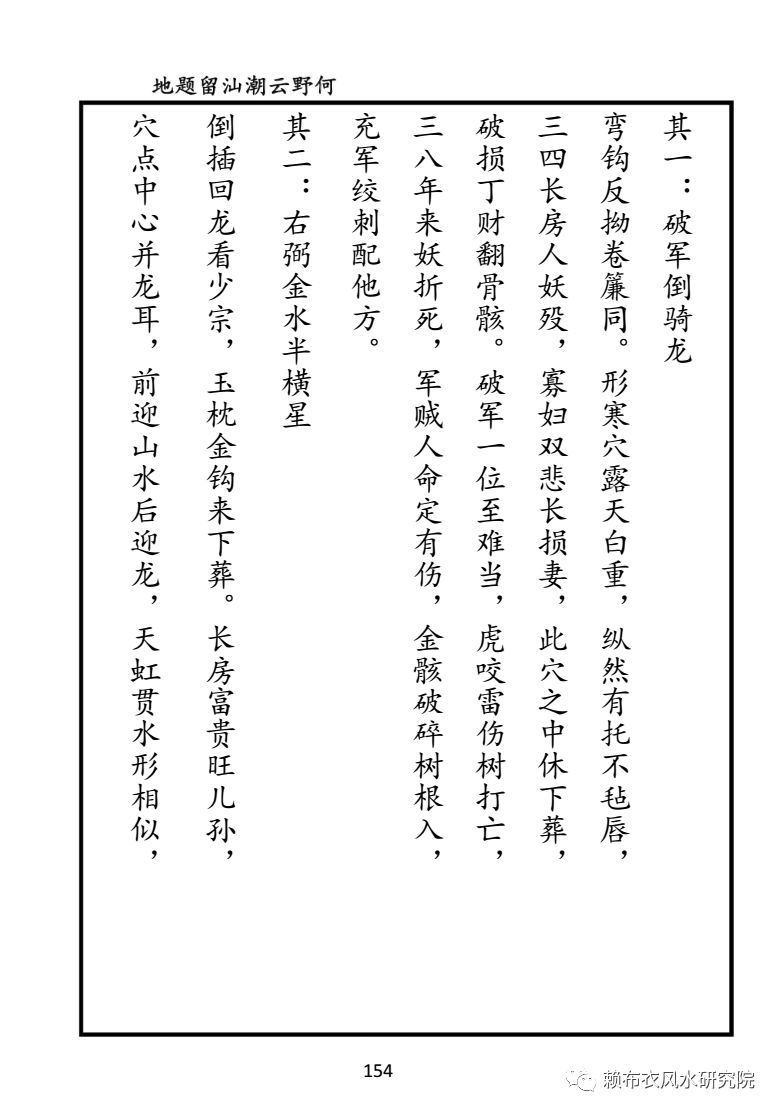 地题留汕潮云野何
其一：破军倒骑龙
弯钩反拗卷簾同。形寒穴露天白重，纵然有托不毡唇，
三四长房人妖殁，寡妇双悲长损妻，此穴之中休下葬，
破损丁财翻骨骸。破军一位至难当，虎咬雷伤树打亡，
三八年来妖折死，军贼人命定有伤，金骸破碎树根入，
充军绞刺配他方。
其二：右弼金水半横星
倒插回龙看少宗，玉枕金钩来下葬。长房富贵旺儿孙，
穴点中心并龙耳，前迎山水后迎龙，天虹贯水形相似，
154
赖布衣风水研究院